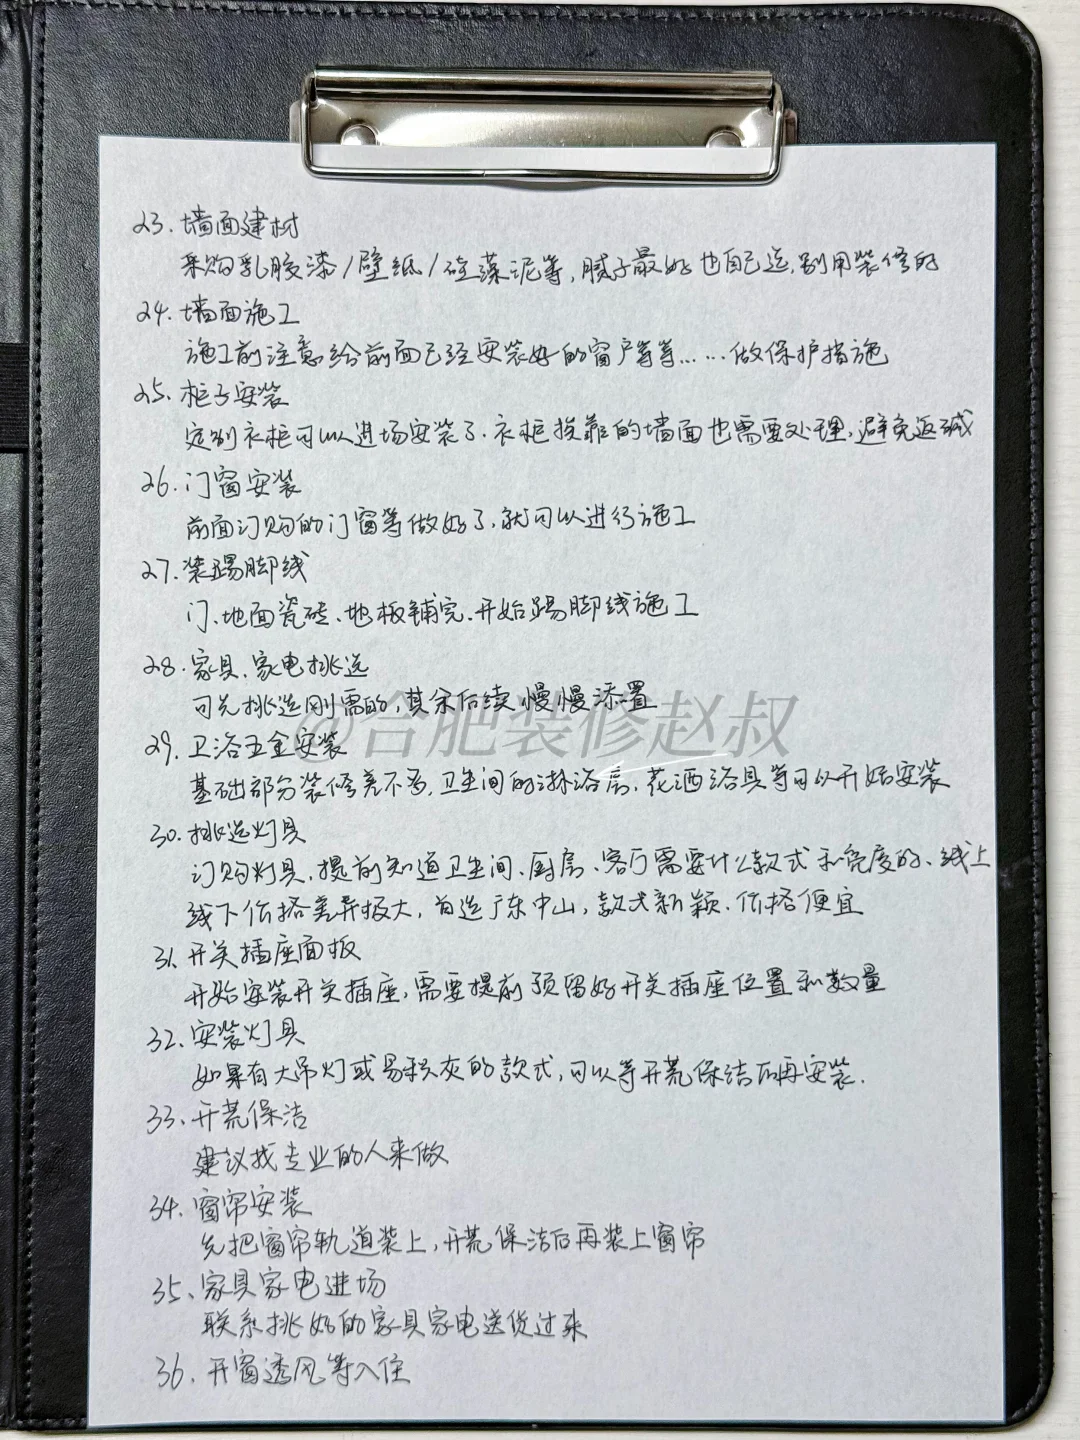 23. 墙面建材
采购乳胶漆/壁纸/硅藻泥等,腻子最好也自己选,别用装修的
24. 墙面施工
施工前注意给前面已经安装好的窗户等等……做保护措施
25. 柜子安装
定制衣柜可以进场安装了.衣柜挨靠的墙面也需要处理,避免返碱
26. 门窗安装
前面订购的门窗等做好了,就可以进行施工
27. 装踢脚线
门、地面瓷砖、地板铺完.开始踢脚线施工
28. 家具.家电挑选
可先挑选刚需的,其余后续慢慢添置
@合肥装修赵叔
29. 卫浴五金安装
基础部分装修差不多,卫生间的淋浴房、花洒浴具等可以开始安装
30. 挑选灯具
订购灯具,提前知道卫生间、厨房、客厅需要什么款式和亮度的、线上
线下价格差异极大,首选广东中山,款式新颖.价格便宜
31. 开关插座面板
开始安装开关插座,需要提前预留好开关插座位置和数量
32、安装灯具
如果有大吊灯或易积灰的款式,可以等开荒保洁后再安装.
33、开荒保洁
建议找专业的人来做
34、窗帘安装
先把窗帘轨道装上,开荒保洁后再装上窗帘
35、家具家电进场
联系挑好的家具家电送货过来
36、开窗透风等入住